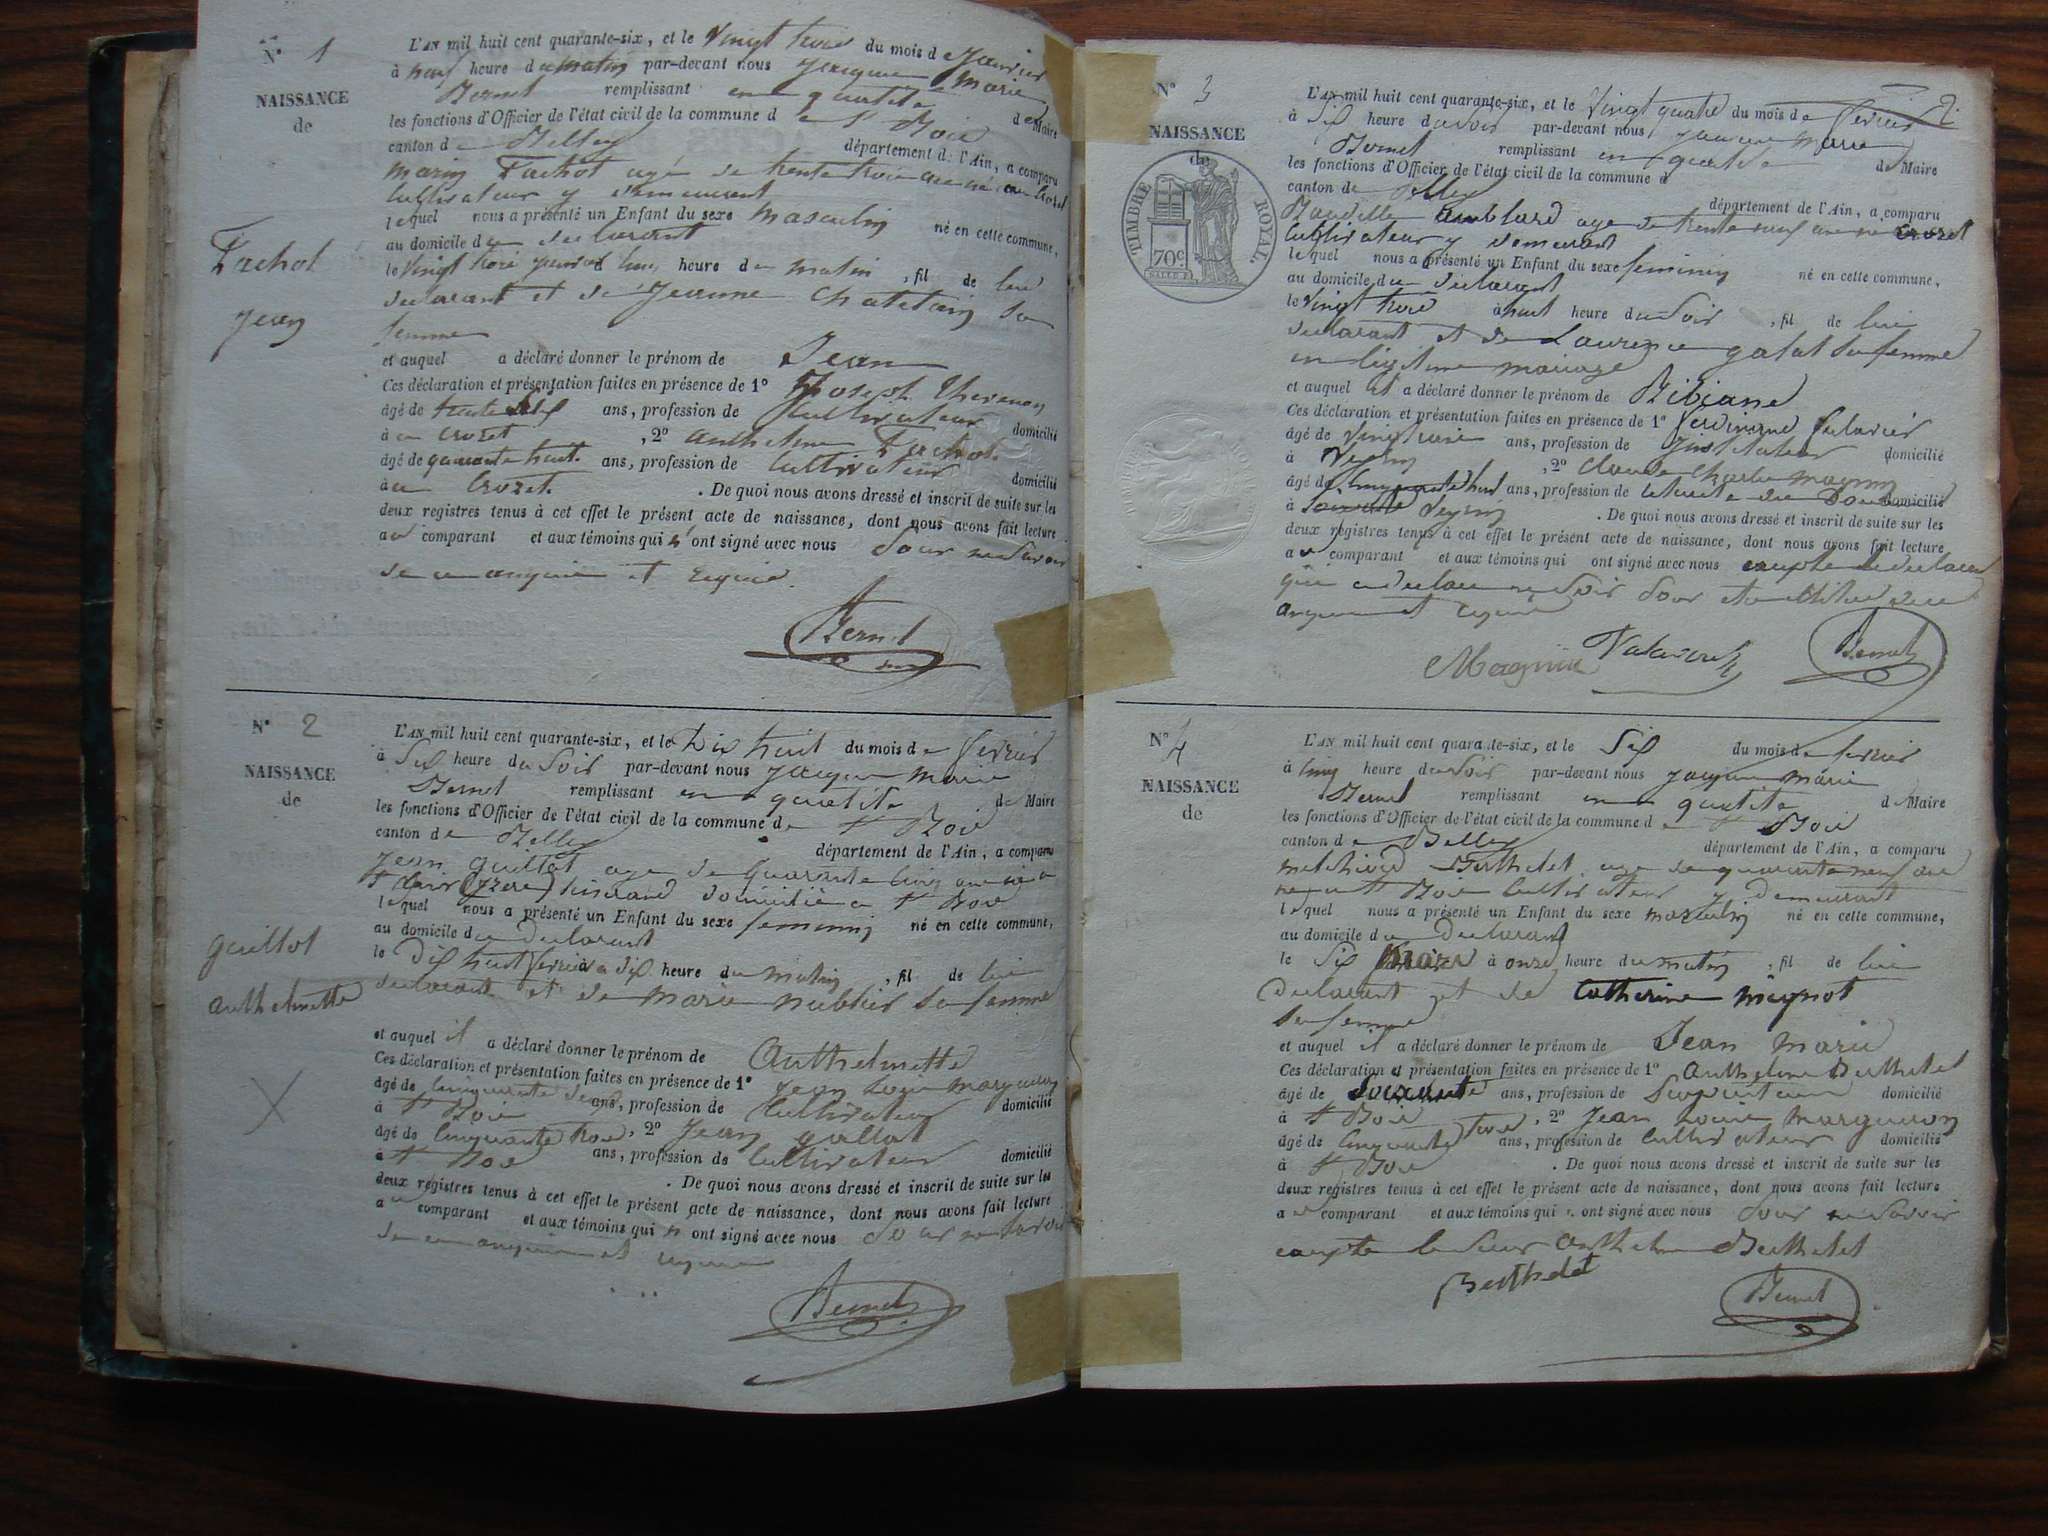 N° 1
NAISSANCE
de
Fachot
Jean
L'AN mil huit cent quarante-six, et le vingt trois du mois de Janvier
à neuf heure du matin par-devant nous Jacques Marie
Bernet remplissant en qualité de Maire
les fonctions d'Officier de l'état civil de la commune de St Boie
canton de Belley département de l'Ain, a comparu
Marin Fachot agé de trente trois ans né au Crozet
Cultivateur y demeurant
lequel nous a présenté un Enfant du sexe masculin né en cette commune,
au domicile du declarant
le vingt trois janvier heure du matin, fil de lui
declarant et de Jeanne Chatelain sa
femme
et auquel a déclaré donner le prénom de Jean
Ces déclaration et présentation faites en présence de 1° Joseph Thevenon
âgé de trente ans, profession de Cultivateur domicilié
à au Crozet, 2° Anthelme Fachot
âgé de quarante huit ans, profession de Cultivateur domicilié
à au Crozet. De quoi nous avons dressé et inscrit de suite sur les
deux registres tenus à cet effet le présent acte de naissance, dont nous avons fait lecture
au comparant et aux témoins qui n'ont signé avec nous pour ne savoir
de ce enquis et requis.
Bernet
N° 2
NAISSANCE
de
guillot
anthelmette
L'AN mil huit cent quarante-six, et le Dix huit du mois de fevrier
à Six heure du Soir par-devant nous Jacques Marie
Bernet remplissant en qualité de Maire
les fonctions d'Officier de l'état civil de la commune de St Boie
canton de Belley département de l'Ain, a comparu
Jean guillot age de quarante cinq ans né a
St (Izere) domicilié a St Boie
lequel nous a présenté un Enfant du sexe feminin né en cette commune,
au domicile du declarant
le Dix huit fevrier a Six heure du matin, fil de lui
declarant et de marie sa femme
et auquel il a déclaré donner le prénom de Anthelmette
Ces déclaration et présentation faites en présence de 1° Jean Louis Margueron
âgé de Cinquante ans, profession de Cultivateur domicilié
à St Boie, 2° Jean gallot
âgé de Cinquante trois ans, profession de Cultivateur domicilié
à St Boie. De quoi nous avons dressé et inscrit de suite sur les
deux registres tenus à cet effet le présent acte de naissance, dont nous avons fait lecture
au comparant et aux témoins qui n ont signé avec nous pour ne savoir
de ce enquis et requis
Bernet
N° 3
NAISSANCE
de
TIMBRE ROYAL.
70c
2.
L'AN mil huit cent quarante-six, et le vingt quatre du mois de fevrier
à Six heure du soir par-devant nous Jacques Marie
Bernet remplissant en qualité de Maire
les fonctions d'Officier de l'état civil de la commune d
canton de Belley département de l'Ain, a comparu
age de trente neuf ans né Crozet
Cultivateur y demeurant
lequel nous a présenté un Enfant du sexe feminin né en cette commune,
au domicile du declarant
le vingt trois à huit heure du Soir, fil de lui
declarant et de Laurence galat sa femme
en légitime mariage
et auquel il a déclaré donner le prénom de Bibiane
Ces déclaration et présentation faites en présence de 1° Ferdinand
âgé de vingt ans, profession de Instituteur domicilié
à Peyrin, 2° Claude Charles Magnin
âgé de ans, profession de domicilié
à Peyrin. De quoi nous avons dressé et inscrit de suite sur les
deux registres tenus à cet effet le présent acte de naissance, dont nous avons fait lecture
au comparant et aux témoins qui ont signé avec nous excepté le declarant
enquis et requis
Magnin Bernet
N° 4
NAISSANCE
de
L'AN mil huit cent quarante-six, et le Six du mois de fevrier
à Cinq heure du Soir par-devant nous Jacques Marie
Bernet remplissant en qualité de Maire
les fonctions d'Officier de l'état civil de la commune de St Boie
canton de Belley département de l'Ain, a comparu
Melchiord Berthelet age de quarante neuf ans
né a St Boie Cultivateur y demeurant
lequel nous a présenté un Enfant du sexe masculin né en cette commune,
au domicile du declarant
le Six mars à onze heure du matin, fil de lui
Declarant et de Catherine Meynot
sa femme
et auquel il a déclaré donner le prénom de Jean Marie
Ces déclaration et présentation faites en présence de 1° Anthelme Berthelet
âgé de Soixante ans, profession de domicilié
à St Boie, 2° Jean Louis Margueron
âgé de Cinquante trois ans, profession de Cultivateur domicilié
à St Boie. De quoi nous avons dressé et inscrit de suite sur les
deux registres tenus à cet effet le présent acte de naissance, dont nous avons fait lecture
au comparant et aux témoins qui n ont signé avec nous pour ne savoir
excepté le Sieur Anthelme Berthelet
Berthelet
Bernet